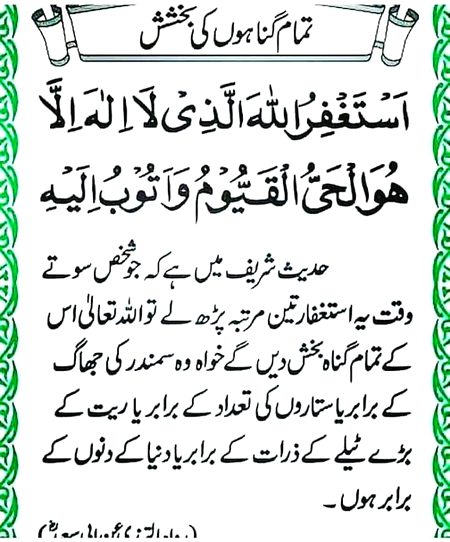 تمام گناہوں کی بخشش
اَسْتَغْفِرُ اللهَ الَّذِیْ لَا اِلٰهَ اِلَّا
هُوَ الْحَیُّ الْقَیُّوْمُ وَاَتُوْبُ اِلَیْهِ
حدیث شریف میں ہے کہ جو شخص سوتے
وقت یہ استغفار تین مرتبہ پڑھ لے تو اللہ تعالیٰ اس
کے تمام گناہ بخش دیں گے خواہ وہ سمندر کی جھاگ
کے برابر یا ستاروں کی تعداد کے برابر یا ریت کے
بڑے ٹیلے کے ذرات کے برابر یا دنیا کے دنوں کے
برابر ہوں ۔